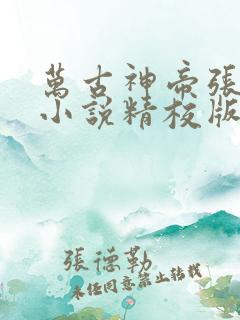 萬古神帝張
小說精校版
張德勒
未經同意禁止轉載